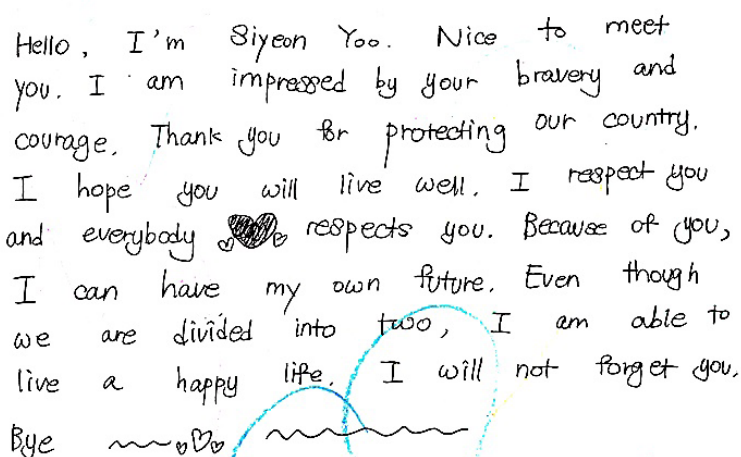 Hello, I'm Siyeon Yoo. Nice to meet
you. I am impressed by your bravery and
courage. Thank you for protecting our country.
I hope you will live well. I respect you
and everybody respects you. Because of you,
I can have my own future. Even though
we are divided into two, I am able to
live a happy life. I will not forget you.
Bye